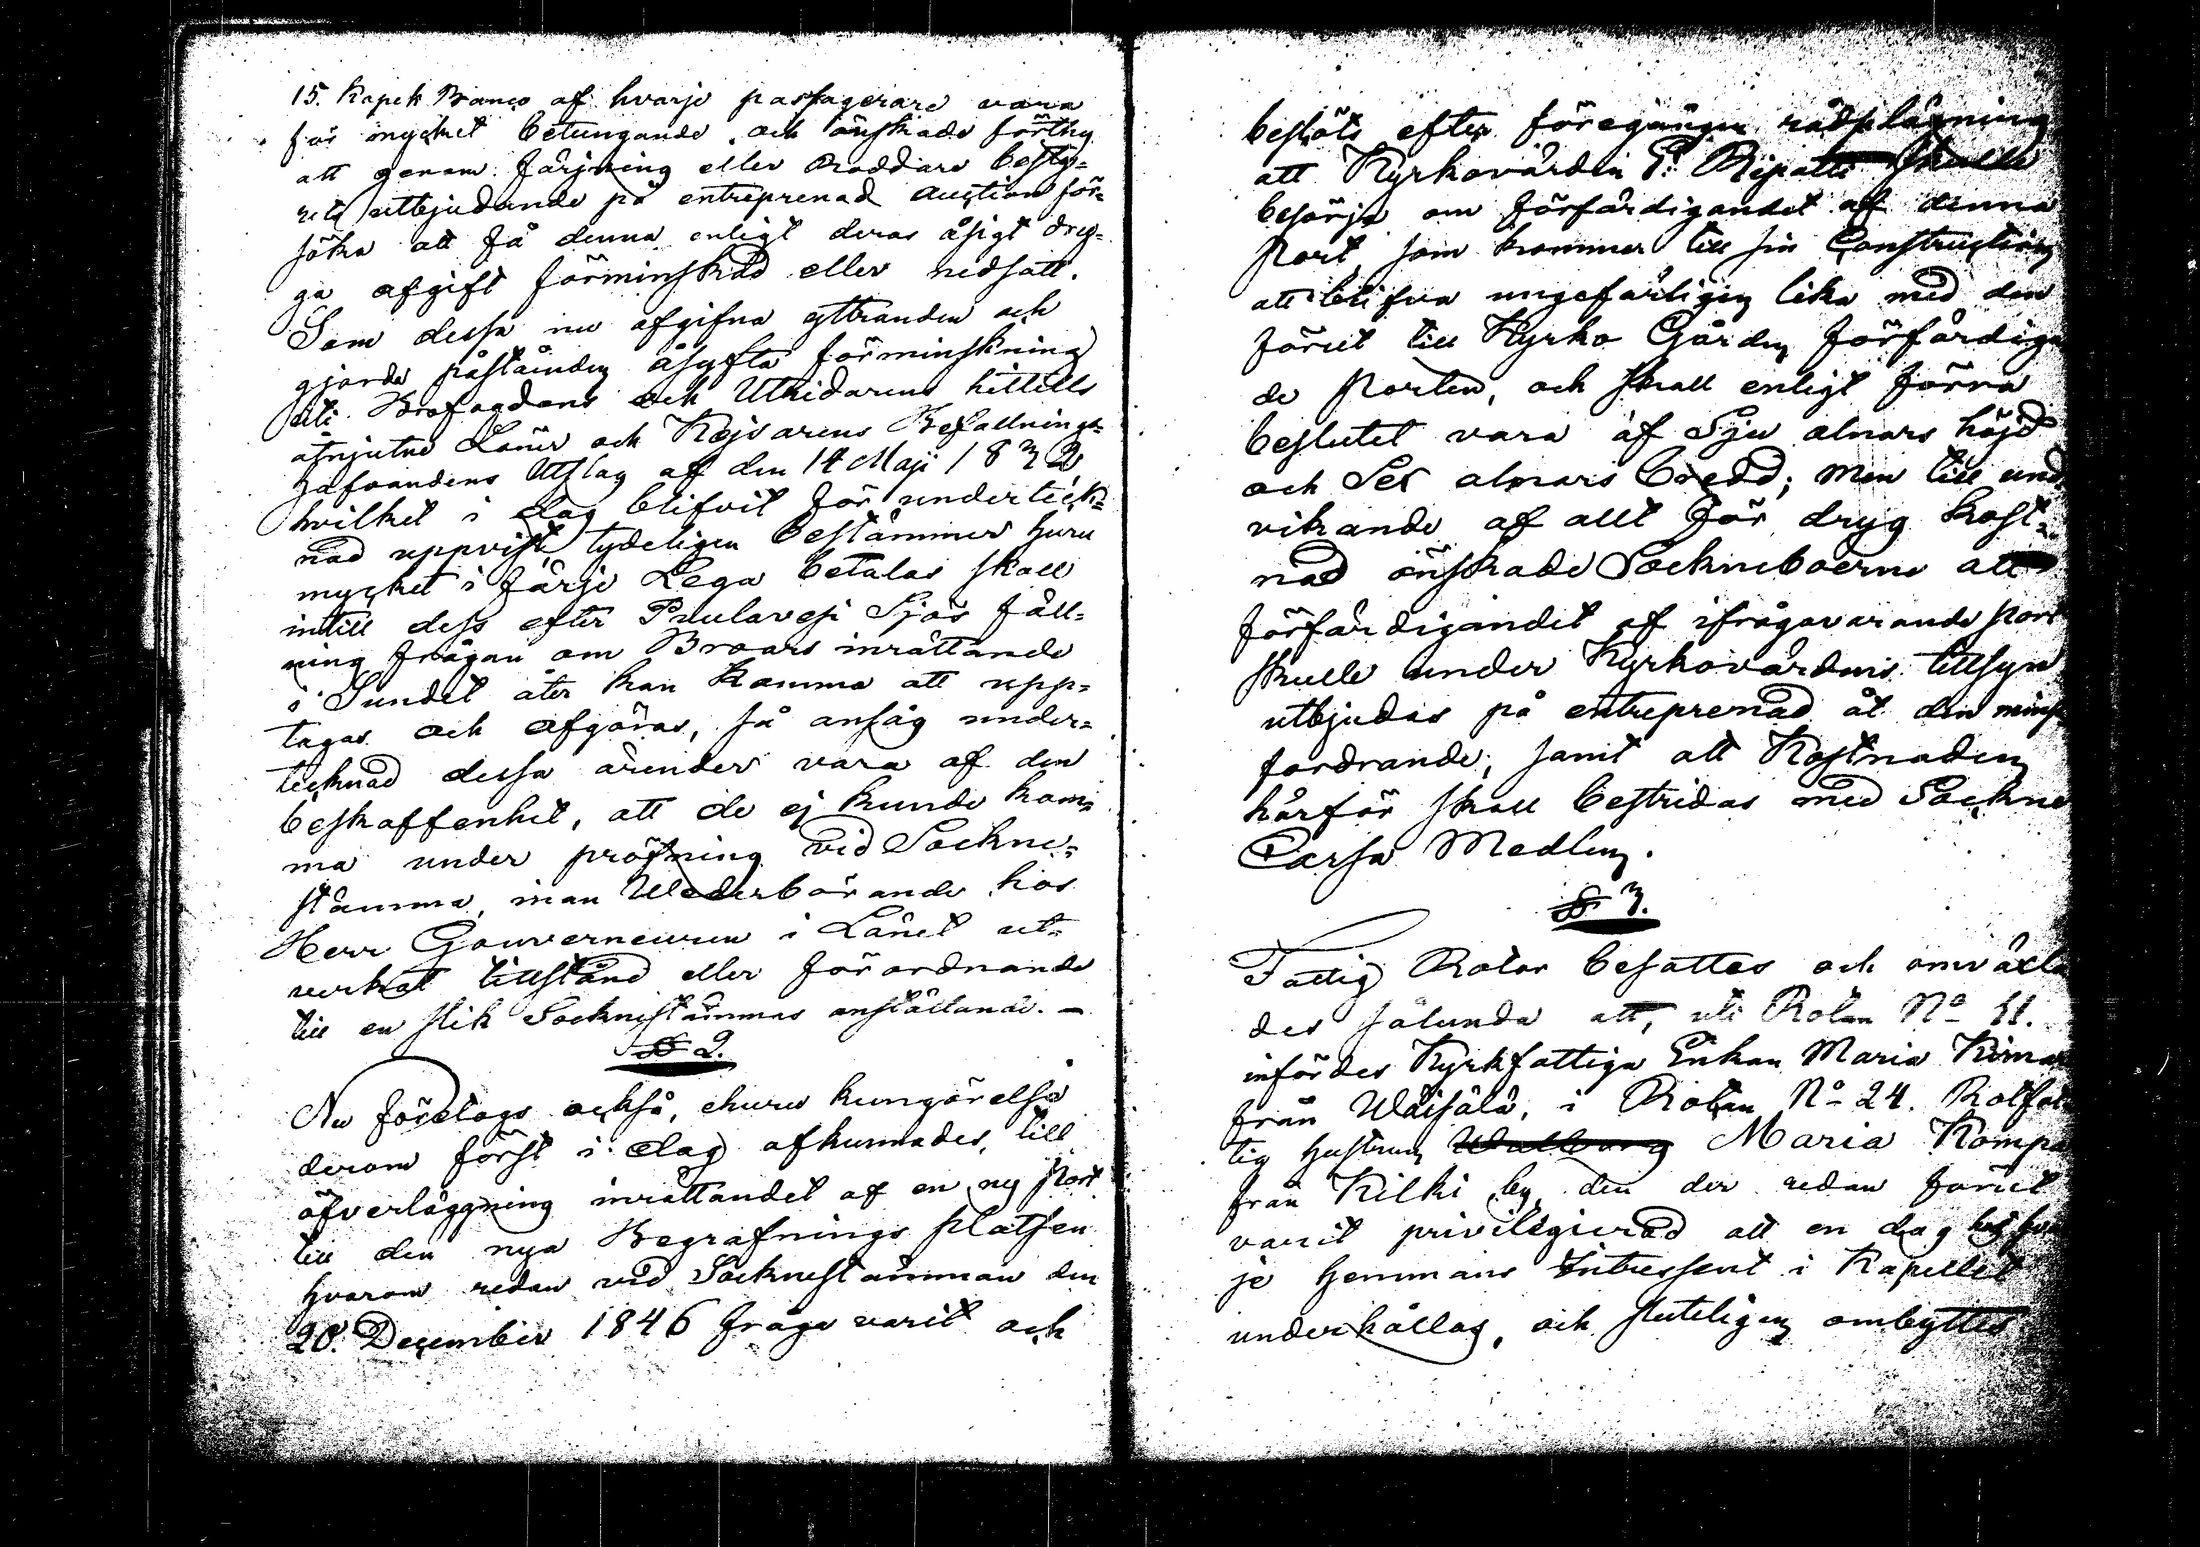 15. Kopek Banco af hvarje passagerare vara
för mycket betungande och önskade förthy
att genom färjning eller Roddare besty-
rets utbjudande på entreprenad Auction för-
söka att få denna enligt deras åsigt dry-
ga afgift förminskad eller nedsatt.
Som dessa nu afgifna yttranden och
gjorda påståenden åsyfta förminskning
uti Brofogdens och Utridarens hittills
åtnjutne Löner och Kejsarens Befallnings-
hafvandens Utslag af den 14 Maji 1832
hvilket i dag blifvit för underteck-
nad uppvist, tydeligen bestämmer huru
mycket i färje Lega betalas skall
intill dess efter Puulavesi Sjös fäll-
ning frågan om Broars inrättande
i Sundet åter kan komma att upp-
tagas och afgöras, så ansåg under-
tecknad dessa ärender vara af den
beskaffenhet, att de ej kunde kom-
ma under pröfning vid Sockne-
stämma, innan Wederbörande hos
Herr Gouverneuren i Länet ut-
verkat tillstånd eller förordnande
till en slik Socknestämmas anställande. -
§ 2.
Nu företogs också, ehuru kungörelse
derom först i dag afkunnades, till
öfverläggning inrättandet af en ny Port
till den nya Begrafnings platsen
hvarom redan vid Socknestämman den
20. December 1846 fråga varit och
beslöts efter föregången rådplägning
att Kyrkovärden P. Ripatti skulle
besörja om förfärdigandet af denna
Port, som kommer till sin Construction
att blifva ungefärligen lika med den
förut till Kyrko Gården förfärdiga
de Porten, och skall enligt förra
beslutet vara af Sju alnars höjd
och Sex alnars bredd; men till und-
vikande af allt för dryg kost-
nad önskade Sockneboerne att
förfärdigandet af ifrågavarande Port
skulle under Kyrkovärdens tillsyn
utbjudas på entreprenad åt den minst
fordrande, samt att Kostnaden
härför skall bestridas med Sockne
Cassa Medlen.
§ 3.
Fattig Rotar besattes och omväxla
des sålunda att, uti Rotan No 11.
infördes Kyrkfattiga Enkan Maria
från Wäisälä, i Rotan No 24. Rotfat-
tig hustrun Walborg Maria Kompa
från Kilki by, den der redan förut
varit privilegierad att en dag hos hvar
je Hemmans Intressent i Kapellet
underhållas, och sluteligen ombyttes